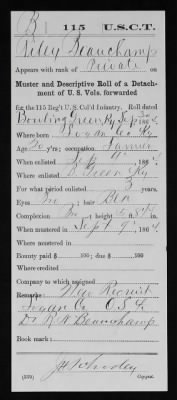 B | 115 | U.S.C.T.
Riley Beauchamp
Appears with rank of Private on
Muster and Descriptive Roll of a Detachment
of U. S. Vols. forwarded
for the 115 Reg't U.S. Col'd Infantry. Roll dated
Bowling Green Ky Sept 30 1864.
Where born Logan Co Ky
Age 20 y'rs; occupation Farmer
When enlisted Sept 9, 1864.
Where enlisted B. Green Ky
For what period enlisted 3 years.
Eyes ; hair Blk
Complexion ; height 5 ft. in.
When mustered in Sept 9, 1864.
Where mustered in
Bounty paid $ 100; due $ 100
Where credited
Company to which assigned
Remarks: New Recruit
Logan Co
Beauchamp
Book mark:
(339) Copyist.